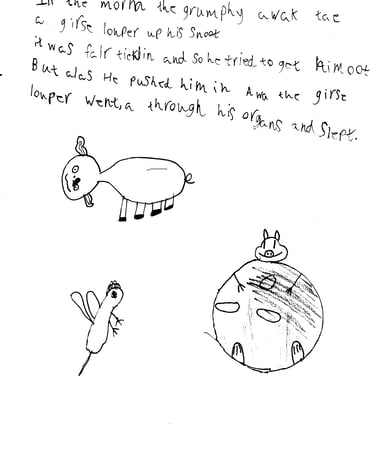 In the morn the grumphy awak tae
a girse louper up his Snoot
it was fair ticklin and so he tried to get Him oot
But alas He pushed him in Awa the girse
louper went,a through his organs and Slept.